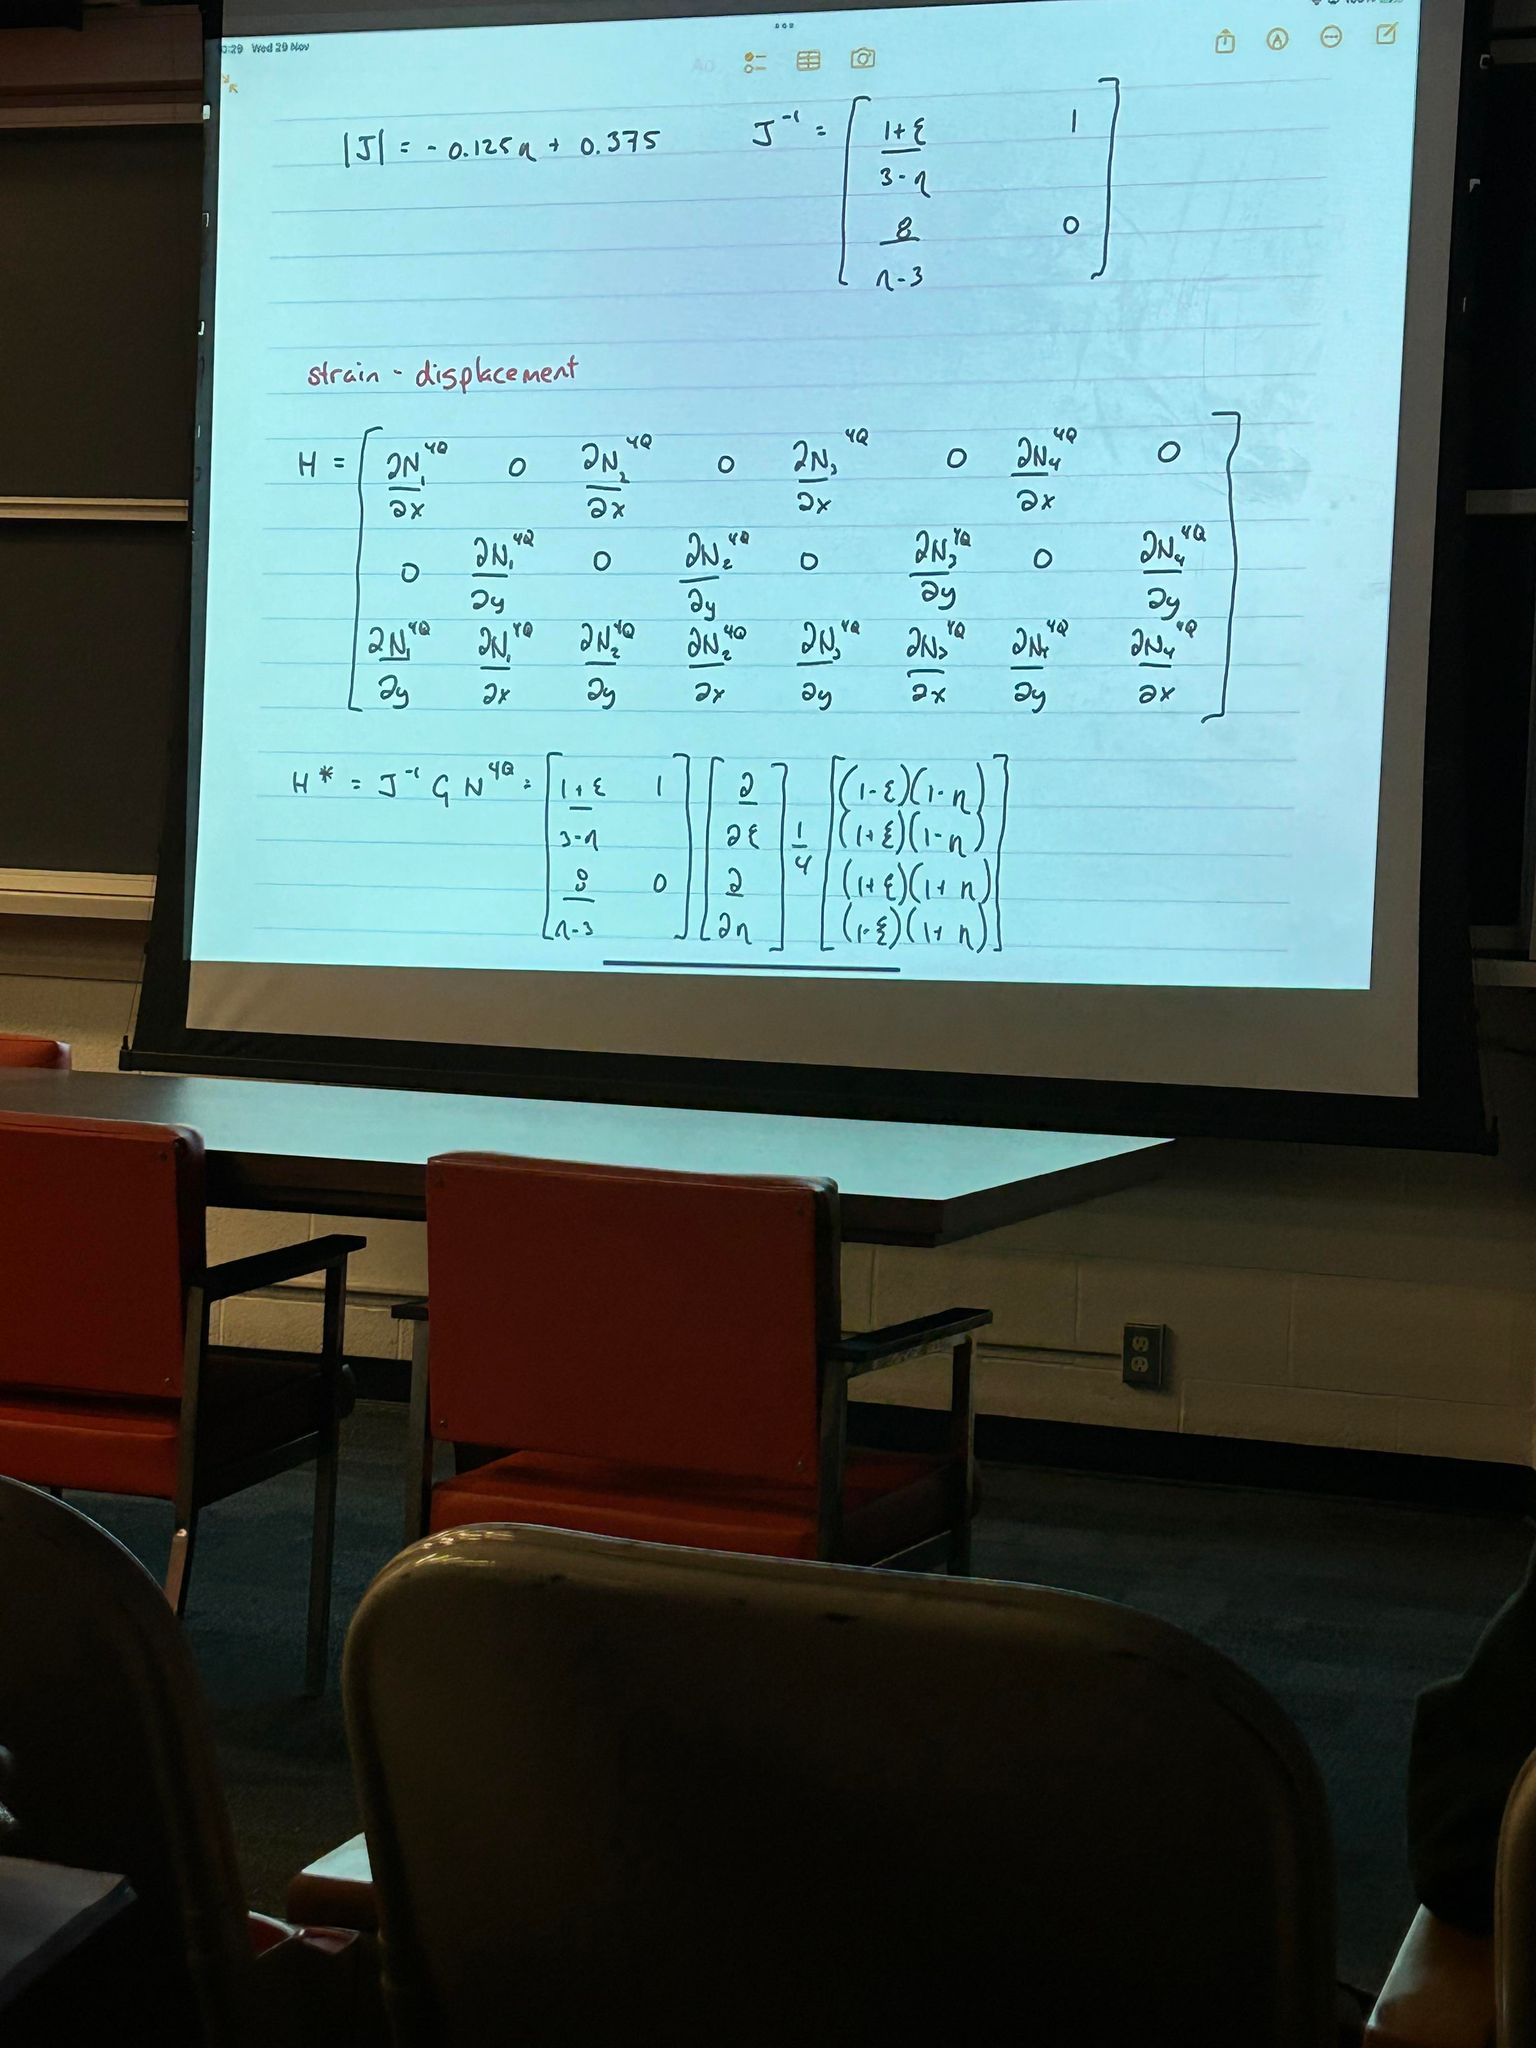 Wed 29 Nov
|J| = - 0.125η + 0.375 J⁻¹ = [ (1+ξ)/(3-η) 1
8/(η-3) 0 ]
strain - displacement
H = [ ∂N₁⁴Q/∂x 0 ∂N₂⁴Q/∂x 0 ∂N₃⁴Q/∂x 0 ∂N₄⁴Q/∂x 0
0 ∂N₁⁴Q/∂y 0 ∂N₂⁴Q/∂y 0 ∂N₃⁴Q/∂y 0 ∂N₄⁴Q/∂y
∂N₁⁴Q/∂y ∂N₁⁴Q/∂x ∂N₂⁴Q/∂y ∂N₂⁴Q/∂x ∂N₃⁴Q/∂y ∂N₃⁴Q/∂x ∂N₄⁴Q/∂y ∂N₄⁴Q/∂x ]
H* = J⁻¹ G N⁴Q = [ (1+ξ)/(3-η) 1 ; 8/(η-3) 0 ] [ ∂/∂ξ ; ∂/∂η ] 1/4 [ (1-ξ)(1-η)
(1+ξ)(1-η)
(1+ξ)(1+η)
(1-ξ)(1+η) ]